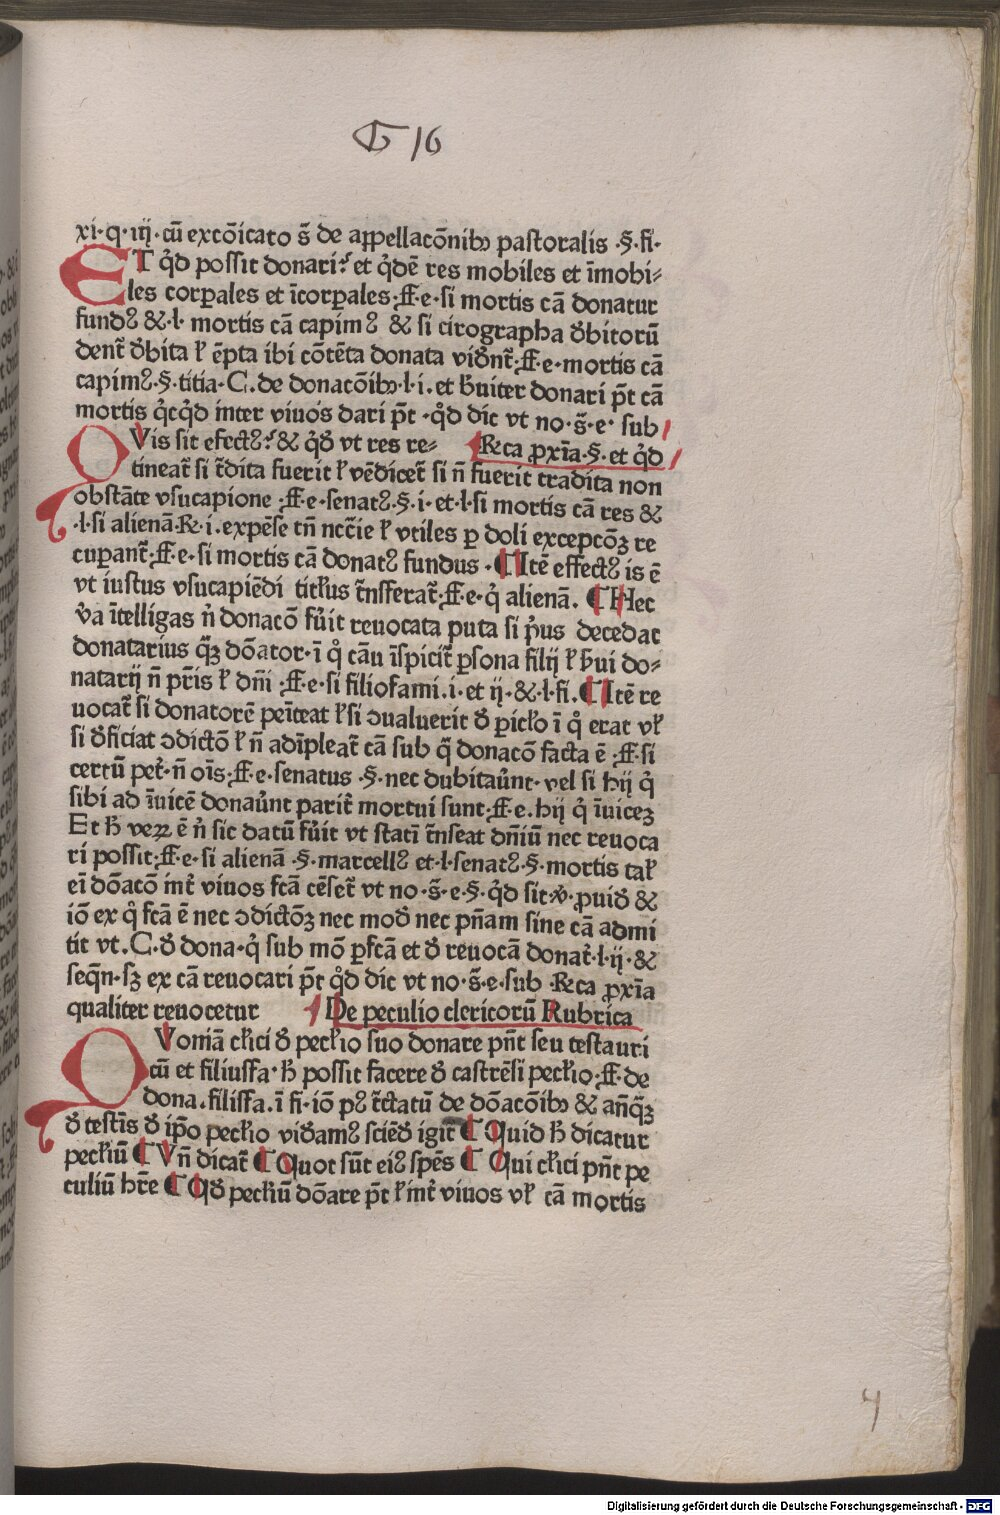 G 16
xi·q·iij·cū excōicato s̄ de appellacōnibꝫ pastoralis ·§·fi·
ET q̇d possit donari? et q̇dē res mobiles et īmobi-
les corꝑales et īcorꝑales·ff·e·si mortis cā donatur
fundꝰ &·l· mortis cā capimꝰ & si cirographa d̄bitorū
dent̄ d̄bita ł ēpta ibi cōtēta donata vidn̄t·ff·e·mortis cā
capimꝰ·§·titia·C·de donacōibꝫ·l·i·et b̄uiter donari pt̄ cā
mortis q̇cq̇d inter viuos dari pt̄ ·q̇d dic vt no·s̄·e· sub
QVis sit efectꝰ? & q̇d vt res re- Rca ꝓxīa·§·et q̇d
tineat̄ si t̄dita fuerit ł vēdicet̄ si n̄ fuerit tradita non
obstāte vsucapione ·ff·e·senatꝰ·§·i·et·l·si mortis cā res &
·l·si alienā·R·i·expēse tn̄ nc̄cīe ł vtiles ꝑ doli excepcōꝫ re
cuꝑant̄·ff·e·si mortis cā donatꝰ fundus ·¶ Itē effectꝰ is ē
vt iustus vsucapiēdi titłus t̄nsferat̄·ff·e·q̇ alienā. ¶ Hec
v̄a ītelligas n̄ donacō fūit reuocata puta si p̄us decedat
donatarius q̄ꝫ dōator·ī q̇ cāu īspicit̄ ꝑsona filij ł b̄ui do-
natarij n̄ pr̄is ł dn̄i ·ff·e·si filiofami·i·et ij·&·l·fi·¶ Itē re
uocat̄ si donatorē penīteat ł si ↄualuerit d̄ ꝑicło ī q̇ erat vł
si d̄ficiat ↄdictō ł n̄ adīpleat̄ cā sub q̄ donacō facta ē ·ff·si
certū pet̄·n̄ oīs·ff·e·senatus ·§·nec dubitaūnt· vel si hij q̇
sibi ad īuicē donaūnt parit̄ mortui sunt·ff·e·hij q̇ īuiceꝫ
Et h̄ veꝝ ē n̄ sic datū fūit vt statī t̄nseat dn̄iū nec reuoca
ri possit·ff·e·si alienā ·§·marcellꝰ et·l·senatꝰ·§·mortis tał
eī dōacō int̄ viuos fcā cēset̄ vt no·s̄·e·§·q̇d sit·v·ꝓuid̄ &
iō ex q̇ fcā ē nec ↄdictōꝫ nec mod̄ nec pn̄am sine cā admi
tit vt·C·d̄ dona·q̇ sub mō ꝑfcā et d̄ reuocā donat̄·l·ij·&
seqn̄·sꝫ ex cā reuocari pt̄ q̇d dic vt no·s̄·e·sub Rca ꝓxīa
qualiter reuocetur De peculio clericorū Rubrica
QVoniā cłici d̄ pecłio suo donare pn̄t seu testari
cū et filiusfa· h̄ possit facere d̄ castrēsi pecłio·ff·de
dona·filisfa·ī fi·iō pꝰ t̄ctatū de dōacōibꝫ & anq̄ꝫ
d̄ testīs d̄ ip̄o pecłio vid̄amꝰ sciēd̄ igit̄ ¶ Quid h̄ dicatur
pecłiū ¶ Vn̄ dicat̄ ¶ Quot sūt eiꝰ spēs ¶ Qui cłici pn̄t pe
culiū hr̄e ¶ Qd̄ pecłiū dōare pt̄ ł int̄ viuos vł cā mortis
4
Digitalisierung gefördert durch die Deutsche Forschungsgemeinschaft - DFG